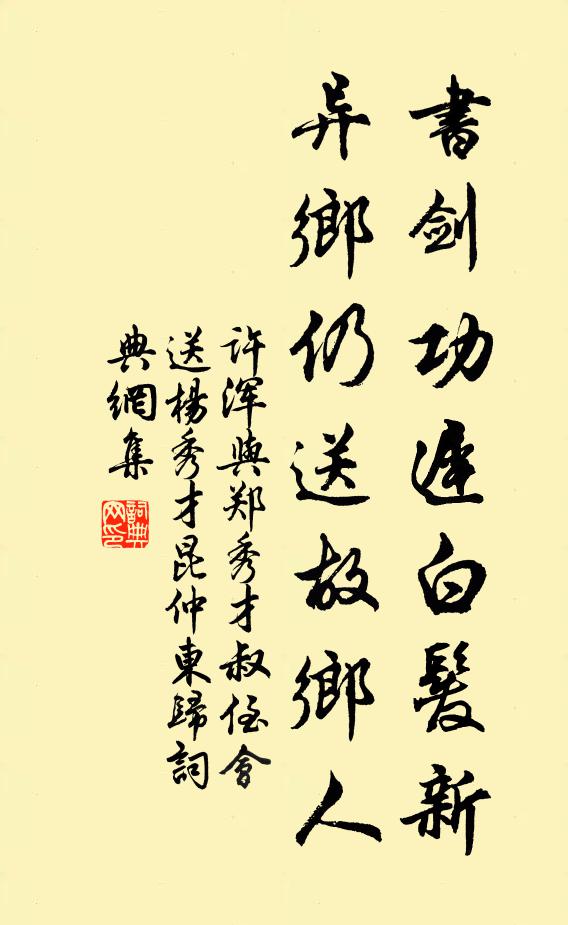 書剑功遲白髮新
异鄉仍送故鄉人
许浑與郑秀才叔侄會
送楊秀才昆仲東歸詞
典網集
詞典
网印